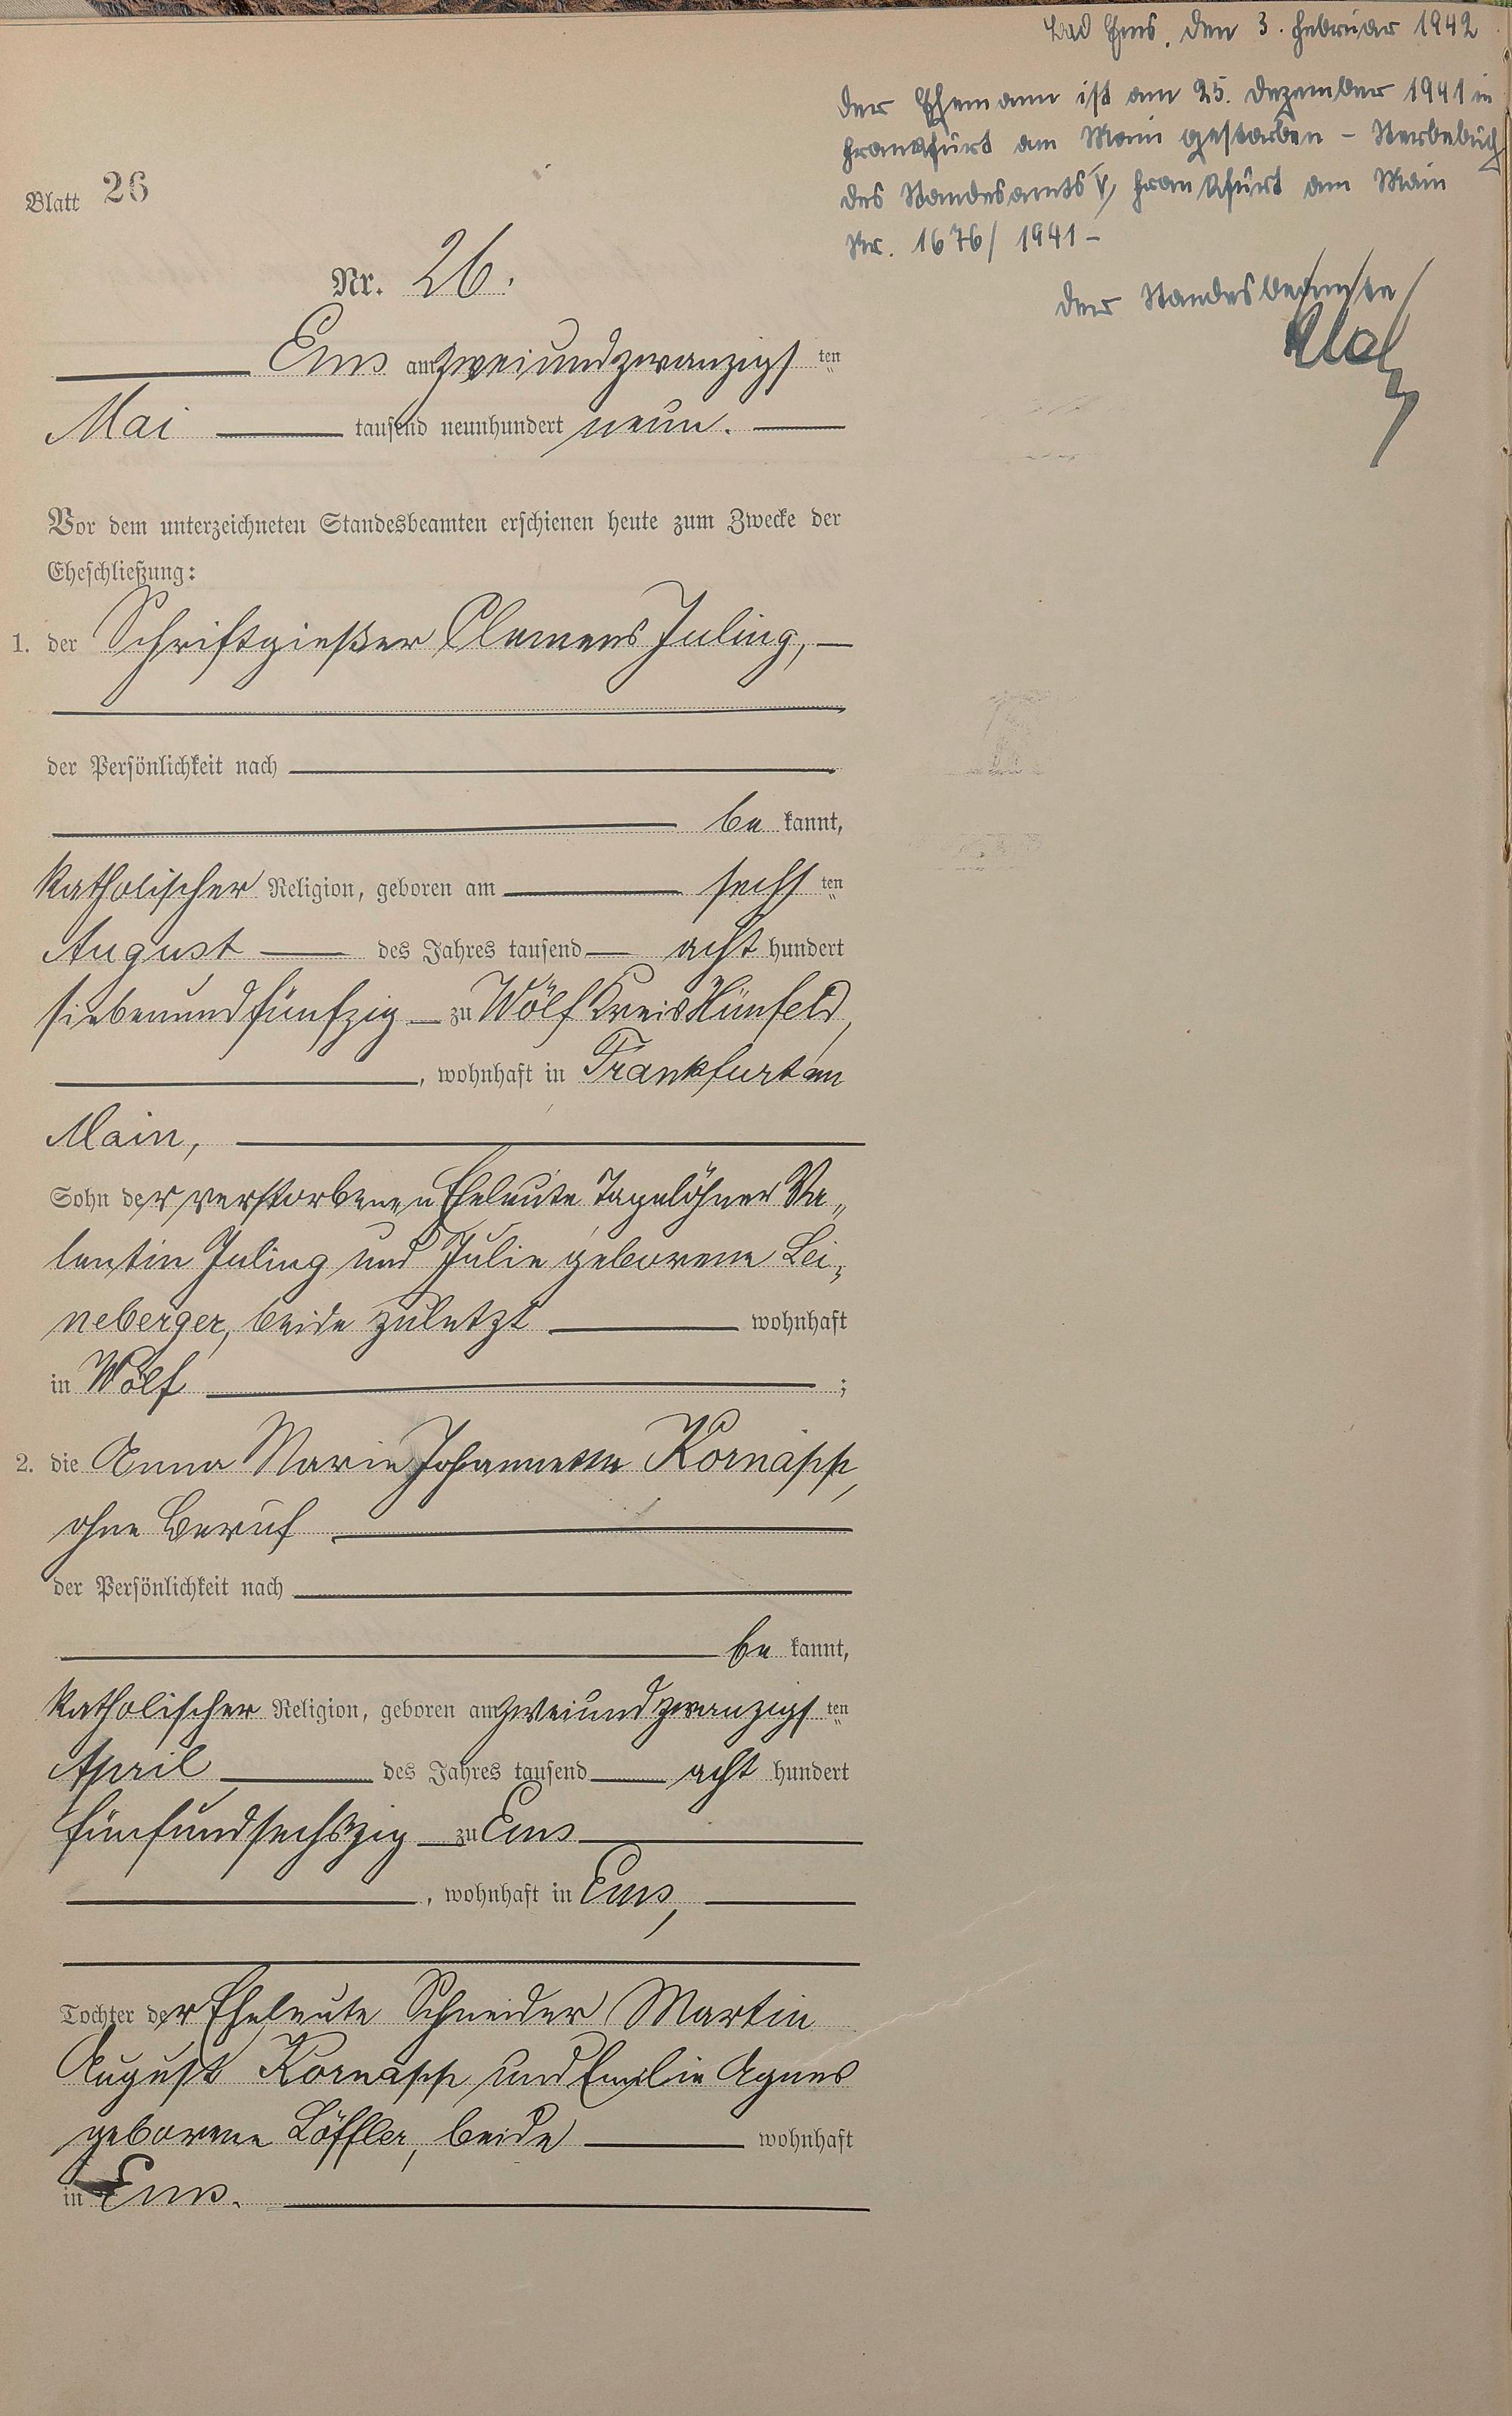 Bad Ems, den 3. Februar 1942
Der Ehemann ist am 25. Dezember 1941 in
Frankfurt am Main gestorben – Sterbebuch
des Standesamts V, Frankfurt am Main
Nr. 1676/1941 –
Der Standesbeamte
Blatt 26
Nr. 26.
Ems am zweiundzwanzigsten
Mai tausend neunhundert neun.
Vor dem unterzeichneten Standesbeamten erschienen heute zum Zwecke der
Eheschließung:
1. der Schriftgießer Clemens Juling,
der Persönlichkeit nach
be kannt,
katholischer Religion, geboren am sechsten
August des Jahres tausend acht hundert
siebenundfünfzig zu Wölf Kreis Hünfeld,
, wohnhaft in Frankfurt am
Main,
Sohn der verstorbenen Eheleute Tagelöhner Va„
lentin Juling und Julie geborene Lei„
neberger, beide zuletzt wohnhaft
in Wölf ;
2. die Anna Marie Johannette Kornäpp,
ohne Beruf
der Persönlichkeit nach
be kannt,
katholischer Religion, geboren am zweiundzwanzigsten
April des Jahres tausend acht hundert
fünfundsechszig zu Ems
, wohnhaft in Ems,
Tochter der Eheleute Schneider Martin
August Kornäpp und Emilie Agnes
geborene Löffler, beide wohnhaft
in Ems.